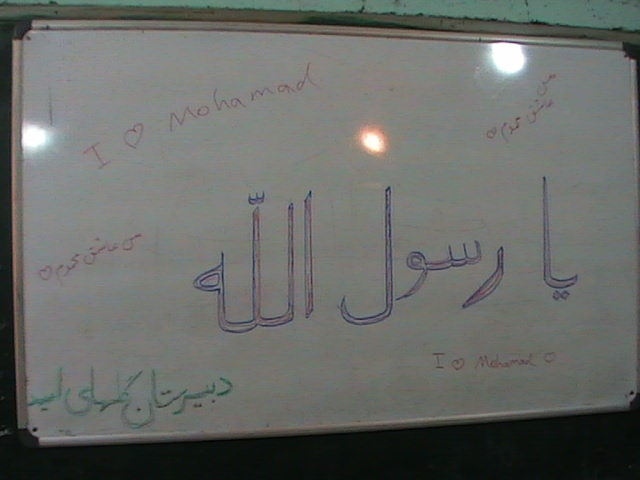 I ♡ Mohamad
من
عاشق محمدم ♡
یا رسول الله
من عاشق محمدم ♡
I ♡ Mohamad ♡
دبیرستان گلهای امید